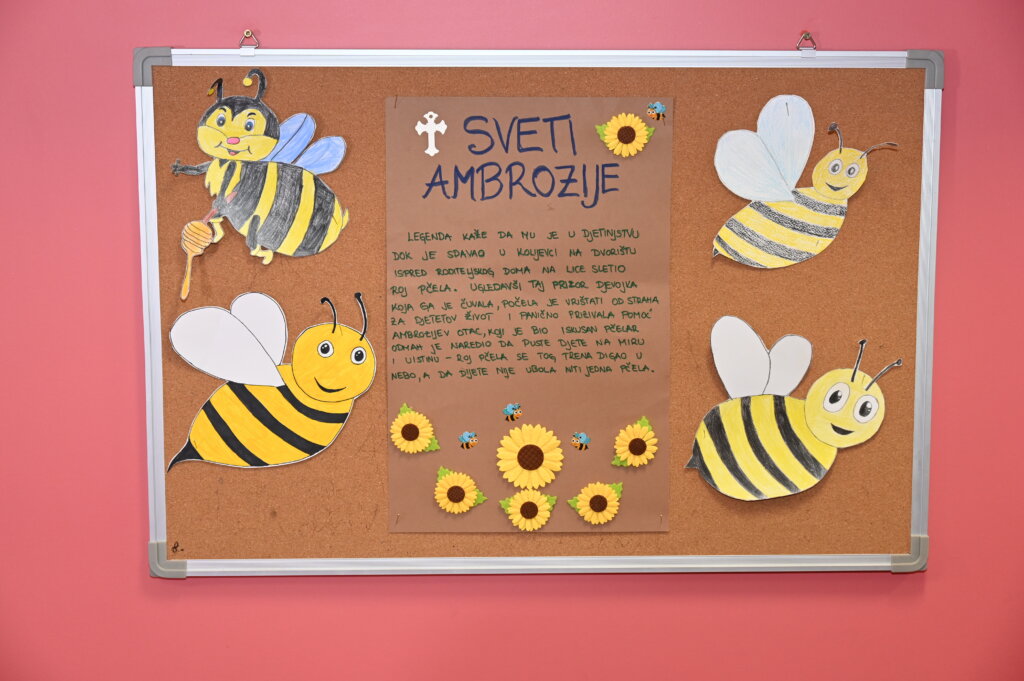 SVETI
AMBROZIJE
LEGENDA KAŽE DA MU JE U DJETINJSTVU
DOK JE SPAVAO U KOLIJEVCI NA DVORIŠTU
ISPRED RODITELJSKOG DOMA NA LICE SLETIO
ROJ PČELA. UGLEDAVŠI TAJ PRIZOR DJEVOJKA
KOJA GA JE ČUVALA, POČELA JE VRIŠTATI OD STRAHA
ZA DJETETOV ŽIVOT I PANIČNO PRIZIVALA POMOĆ
AMBROZIJEV OTAC, KOJI JE BIO ISKUSAN PČELAR
ODMAH JE NAREDIO DA PUSTE DIJETE NA MIRU
I UISTINU - ROJ PČELA SE TOG TRENA DIGAO U
NEBO, A DA DIJETE NIJE UBOLA NITI JEDNA PČELA.